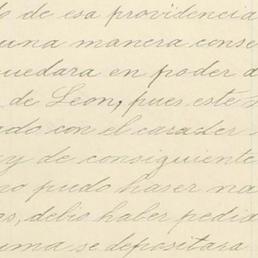 o de esa providencia
una manera conse
quedara en poder d
de Leon, pues este n
ado con el caracter
y de consiguiente
no pudo haser na
os, debio haber pedid
uma se depositara